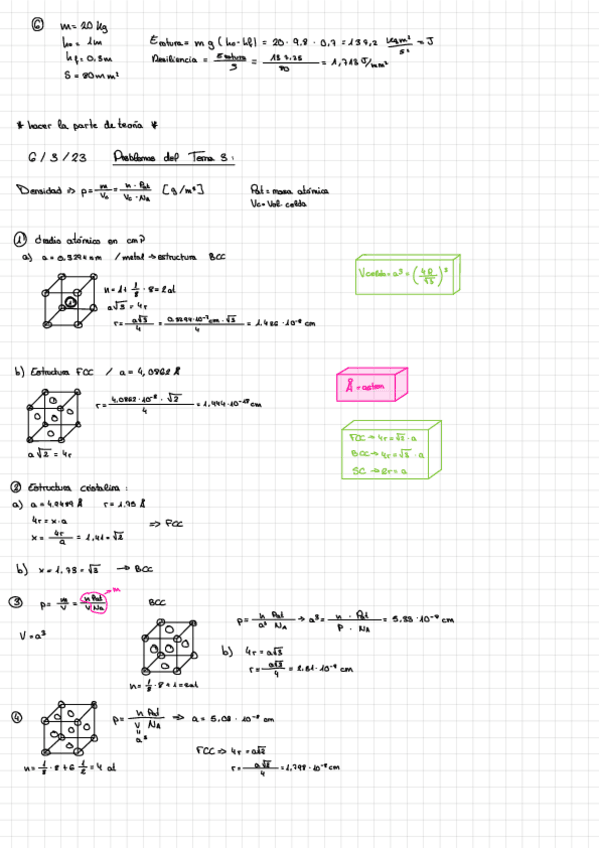 ⑥ m = 20 kg
ho = 1m
hf = 0,3m
S = 80mm²
Erotura = m g (ho - hf) = 20 · 9,8 · 0,7 = 137,2 kg m² / s² = J
Resiliencia = Erotura / S = 137,25 / 80 = 1,715 J/mm²
* hacer la parte de teoría *
6 / 3 / 23 Problemas del Tema 3:
Densidad => ρ = m / Vc = n · Pat / Vc · NA [g/m³]
Pat = masa atómica
Vc = Vol. celda
① dradio atómico en cm?
a) a = 0,3294 nm / metal → estructura BCC
n = 1 + 1/8 · 8 = 2at
a√3 = 4r
r = a√3 / 4 = 0,3294·10⁻⁷cm · √3 / 4 = 1,426 · 10⁻⁸ cm
Vcelda = a³ = (4R / √3)³
b) Estructura FCC / a = 4,0862 Å
r = 4,0862 · 10⁻⁸ · √2 / 4 = 1,444 · 10⁻⁸ cm
a√2 = 4r
Å = astron
FCC → 4r = √2 · a
BCC → 4r = √3 · a
SC → 2r = a
② Estructura cristalina:
a) a = 4,9489 Å r = 1,75 Å
4r = x · a => FCC
x = 4r / a = 1,41 = √2
b) x = 1,73 = √3 → BCC
③ ρ = m / V = n Pat / V NA → m BCC
V = a³
ρ = n Pat / a³ NA → a³ = n · Pat / ρ · NA = 5,88 · 10⁻⁸ cm
b) 4r = a√3
r = a√3 / 4 = 2,51 · 10⁻⁸ cm
n = 1/8 · 8 + 1 = 2at
④ ρ = n Pat / V NA => a = 5,08 · 10⁻⁸ cm
a³
FCC => 4r = a√2
r = a√2 / 4 = 1,798 · 10⁻⁸ cm
n = 1/8 · 8 + 6 1/2 = 4 at